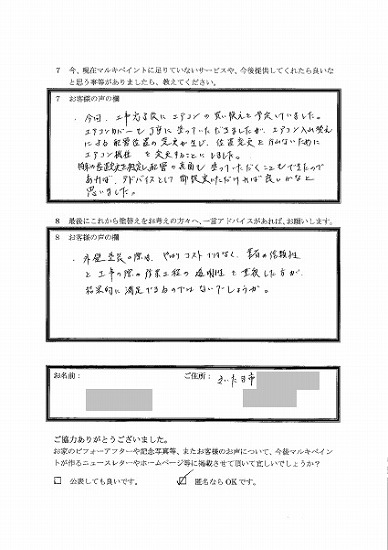 7 今、現在マルキペイントに足りていないサービスや、今後提供してくれたら良いな
と思う事等がありましたら、教えてください。
7 お客様の声の欄
・今回、工事完了後にエアコンの買い換えを予定していました。
エアコンカバーも丁寧に塗っていただきましたが、エアコン入れ替え
による配管位置の変更が生じ、位置変更を行わないために
エアコン機種を変更することになりました。
配管の裏面も塗っていただくこともできたので
あれば、アドバイスとして御提案いただければ良いかなと
思いました。
8 最後にこれから塗替えをお考えの方々へ、一言アドバイスがあれば、お願いします。
8 お客様の声の欄
・外壁塗装の際は、やはりコストだけでなく、業者の信頼性
と工事の際の作業工程の透明性を重視した方が、
結果的に満足できるのではないでしょうか。
お名前: ご住所: さいたま市
ご協力ありがとうございました。
お家のビフォーアフターや記念写真等、またお客様のお声について、今後マルキペイント
が作るニュースレターやホームページ等に掲載させて頂いて宜しいでしょうか?
□ 公表しても良いです。 ☑ 匿名ならOKです。